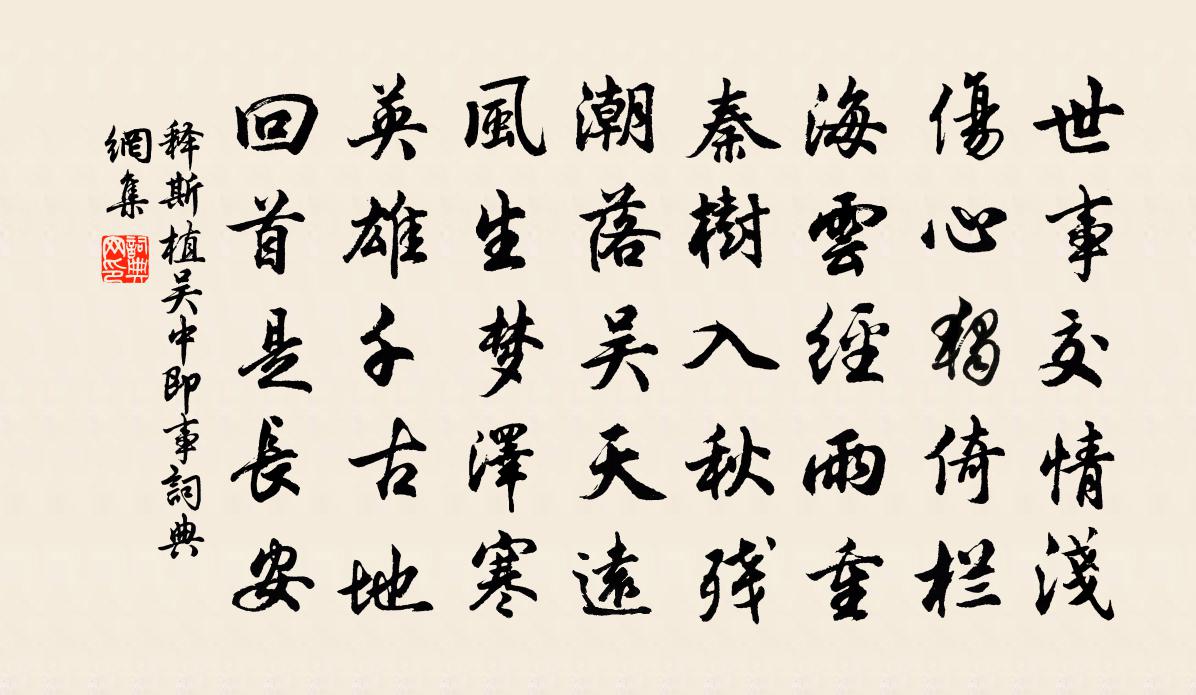 世事交情淺
傷心獨倚栏
海雲經雨重
秦樹入秋残
潮落吴天遠
風生梦澤寒
英雄千古地
回首是長安
释斯植吴中即事詞典
網集
詞典
网印